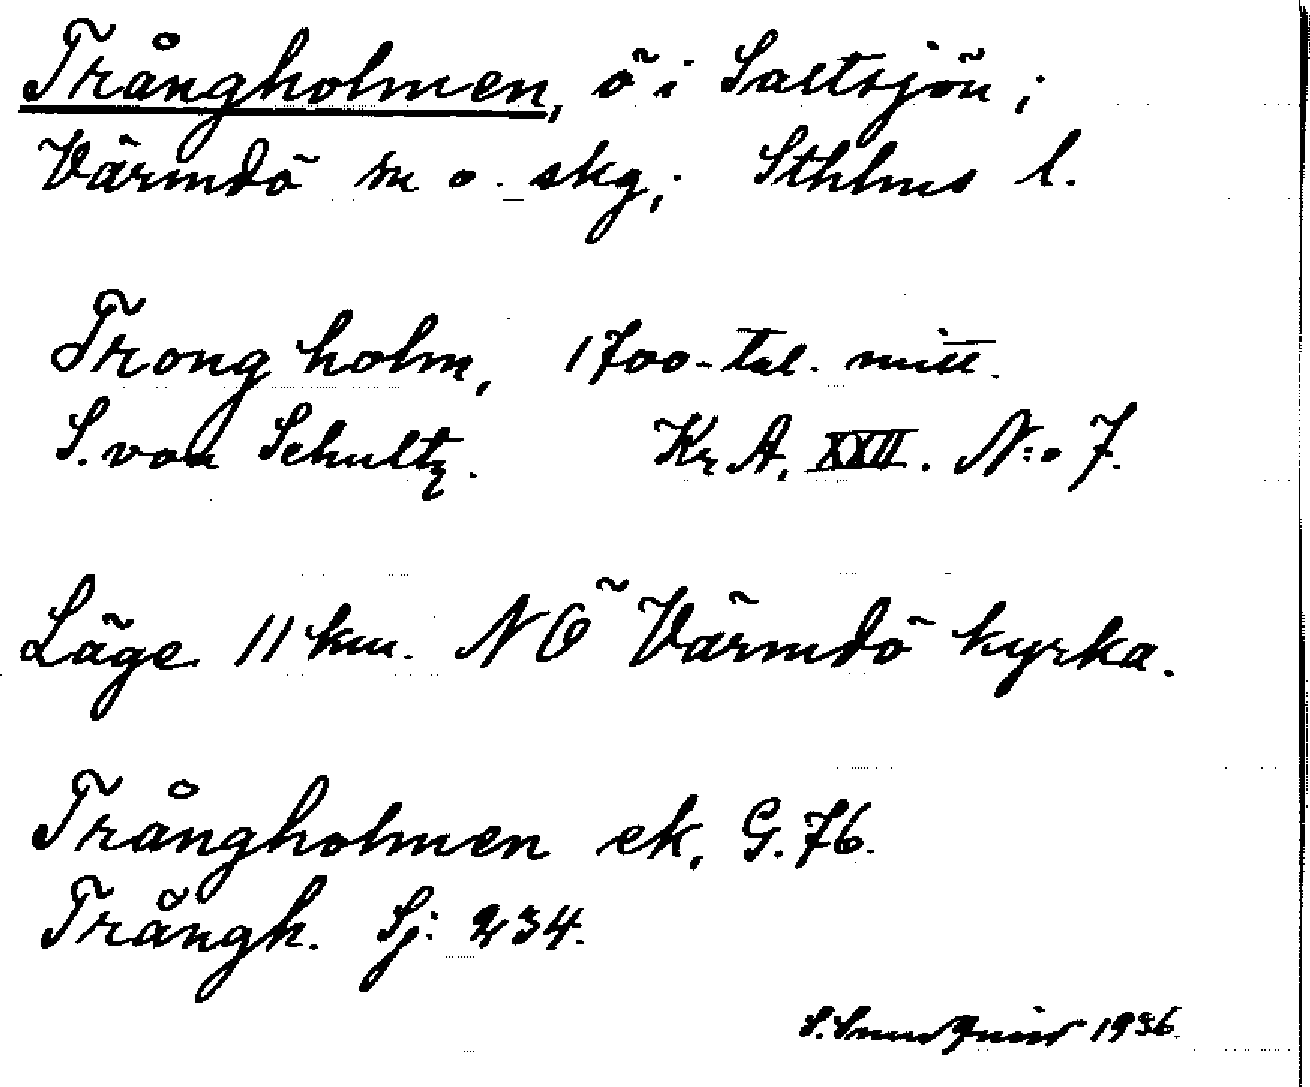 Trångholmen, ö i Saltsjön;
Värmdö sn o. skg; Sthlms l.
Trongholm, 1700-tal. mitt.
S. von Schultz. Kr A. XXII. N:o 7.
Läge 11 km. NÖ Värmdö kyrka.
Trångholmen ek. G. 76.
Trångh. Sj: 234.
S. 1936.